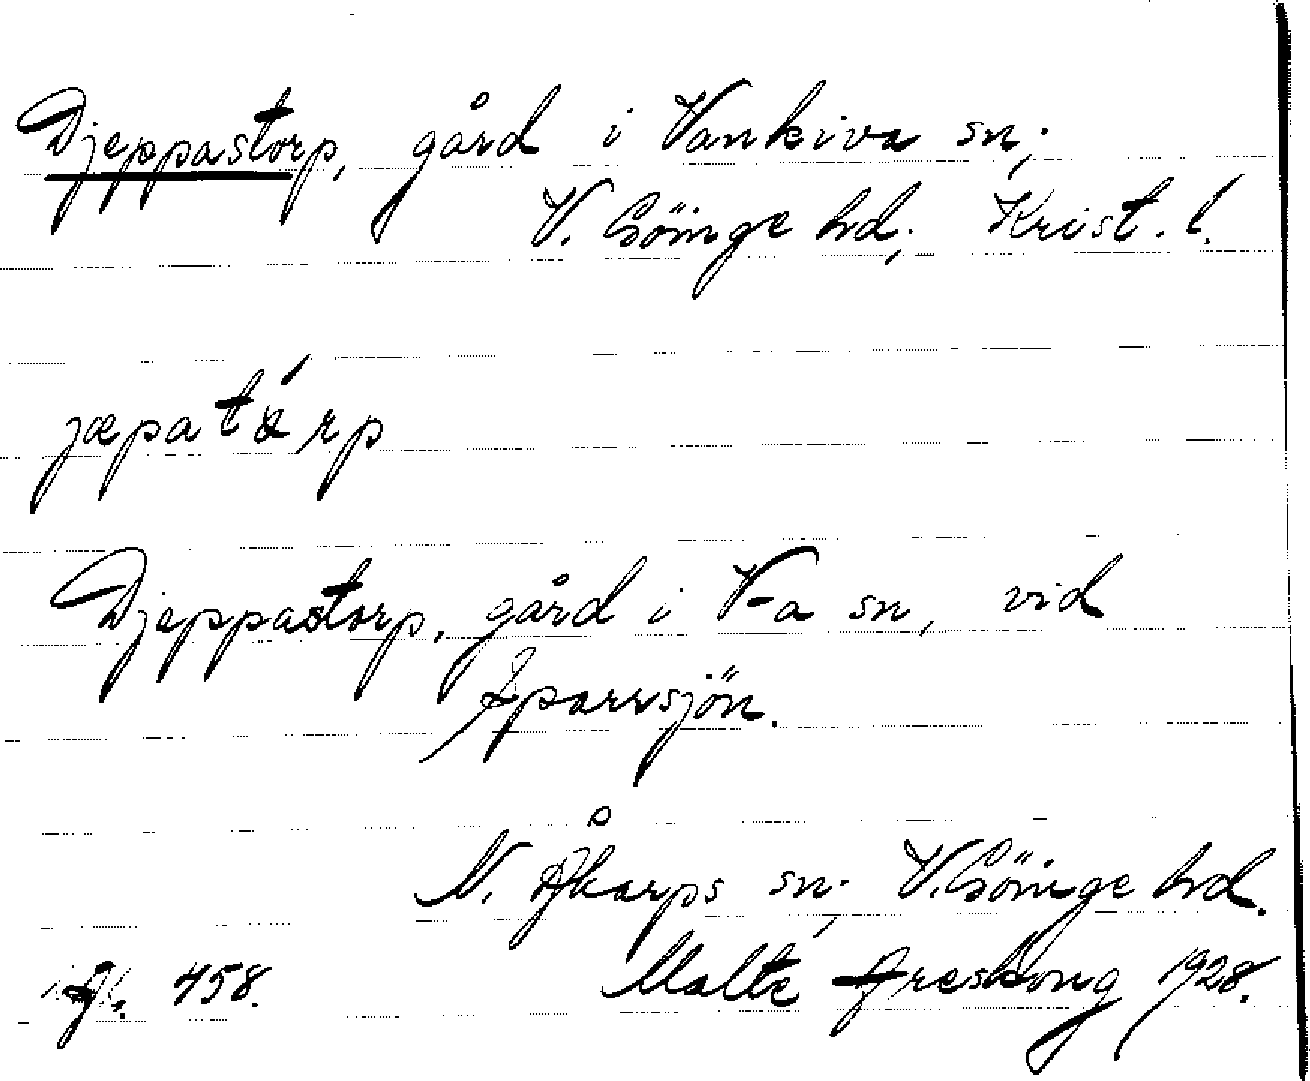 Djeppastorp, gård i Vankiva sn;
V. Göinge hd; Krist. l.
jæpatárp
Djeppastorp, gård i V-a sn, vid
Sparrsjön.
N. Åkarps sn; V. Göinge hd.
458. Malte Areskoug 1928.